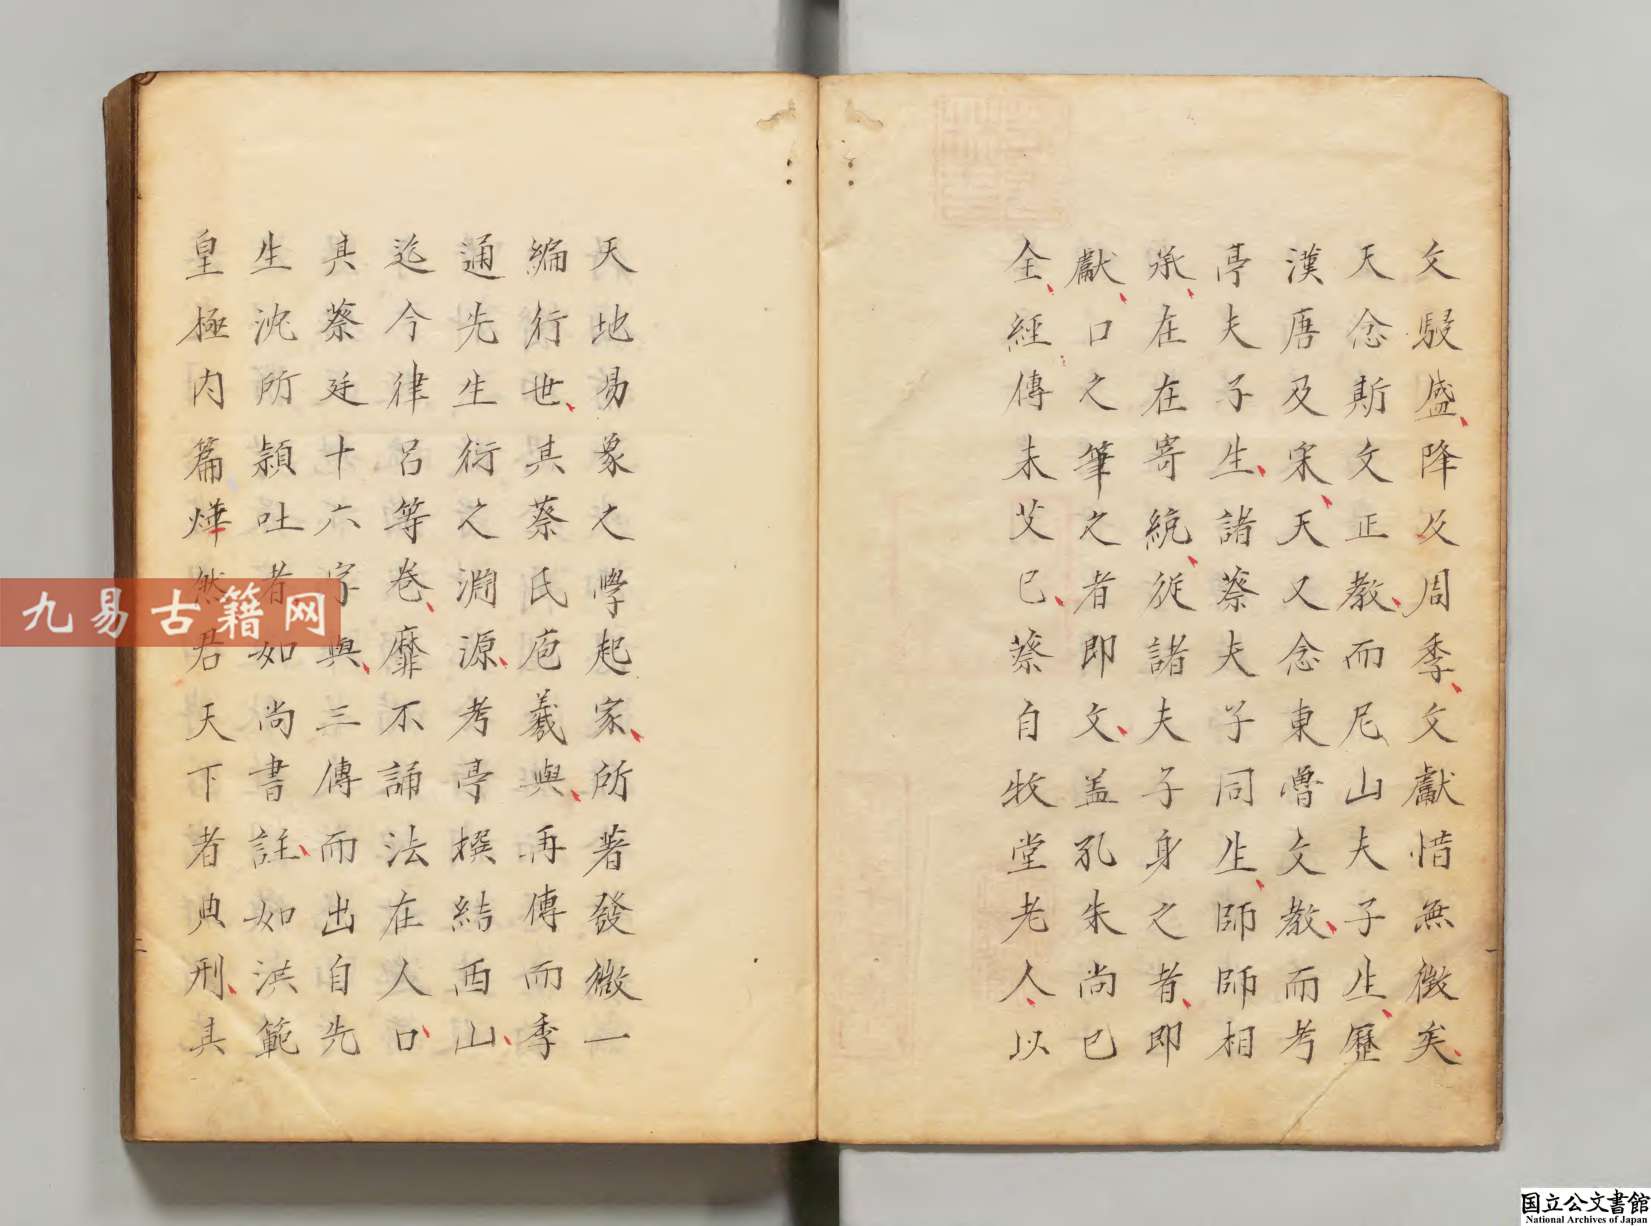 文駸盛降及周季文獻惜無徴矣
天念斯文正教而尼山夫子生歷
漢唐及宋天又念東魯文教而考
亭夫子生諸蔡夫子同生師師相
承在在寄統從諸夫子身之者即
獻口之筆之者即文盖孔朱尚已
全經傳未艾已蔡自牧堂老人以
天地易象之學起家所著發微一
編行世其蔡氏庖羲與再傳而季
通先生衍之淵源考亭撰結西山
迄今律呂等卷靡不誦法在人口
其蔡廷十六字與三傳而出自先
生沈所穎吐者如尚書註如洪範
皇極內篇燁然君天下者典刑其
九易古籍网
国立公文書館
National Archives of Japan